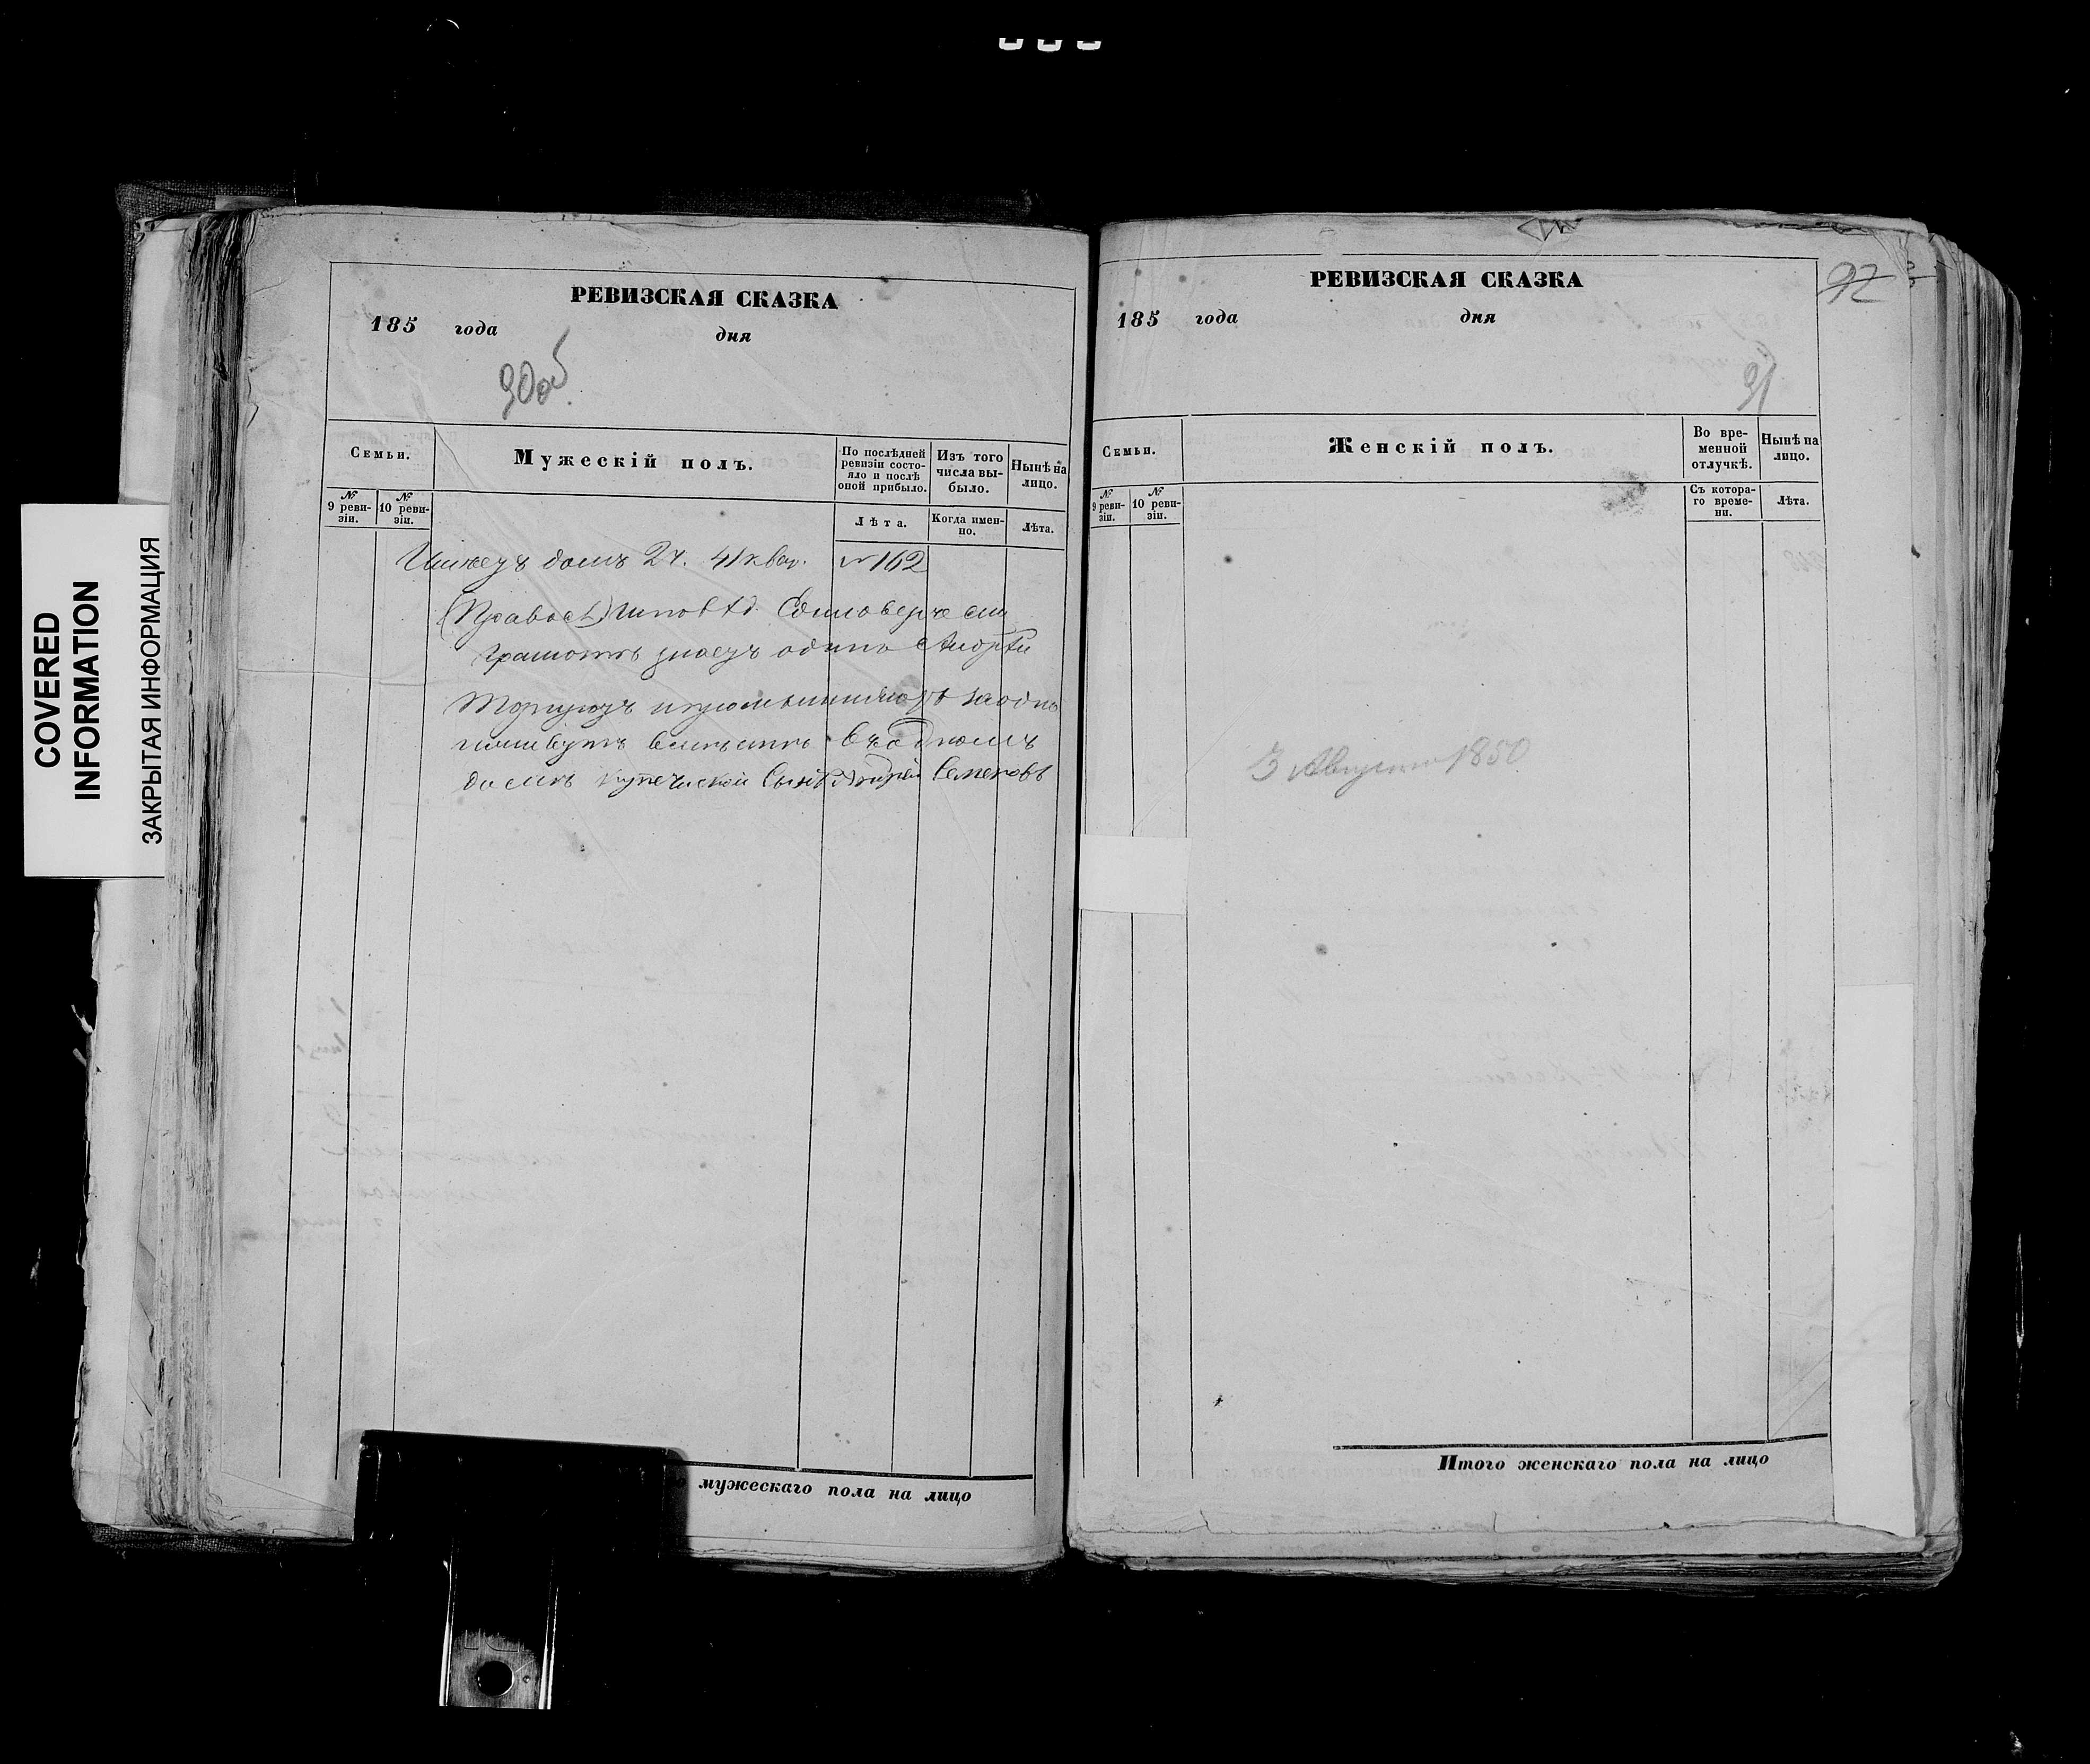 COVERED
INFORMATION
ЗАКРЫТАЯ ИНФОРМАЦИЯ
РЕВИЗСКАЯ СКАЗКА
185 года дня
90об
Семьи.
Мужескій полъ.
По послѣдней ревизіи состояло и послѣ оной прибыло.
Изъ того числа выбыло.
Нынѣ на лицо.
№ 9 ревизіи.
№ 10 ревизіи.
Лѣта.
Когда именно.
Лѣта.
Имѣетъ домъ 2ч. 41 квар. №162
грамотъ знаетъ одинъ Андрѣй
Торгуютъ
въ одномъ
домѣ купеческой Сынъ Андрей Семеновъ
мужескаго пола на лицо
РЕВИЗСКАЯ СКАЗКА
92
185 года дня
91
Семьи.
Женскій полъ.
Во временной отлучкѣ.
Нынѣ на лицо.
№ 9 ревизіи.
№ 10 ревизіи.
Съ котораго времени.
Лѣта.
3 Августа 1850
Итого женскаго пола на лицо